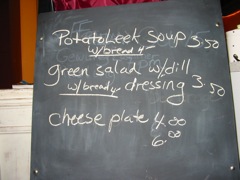 Potato Leek Soup 3.50
w/bread 4-
green salad w/dill
w/bread 4- dressing 3.50
cheese plate 4.00
6.00